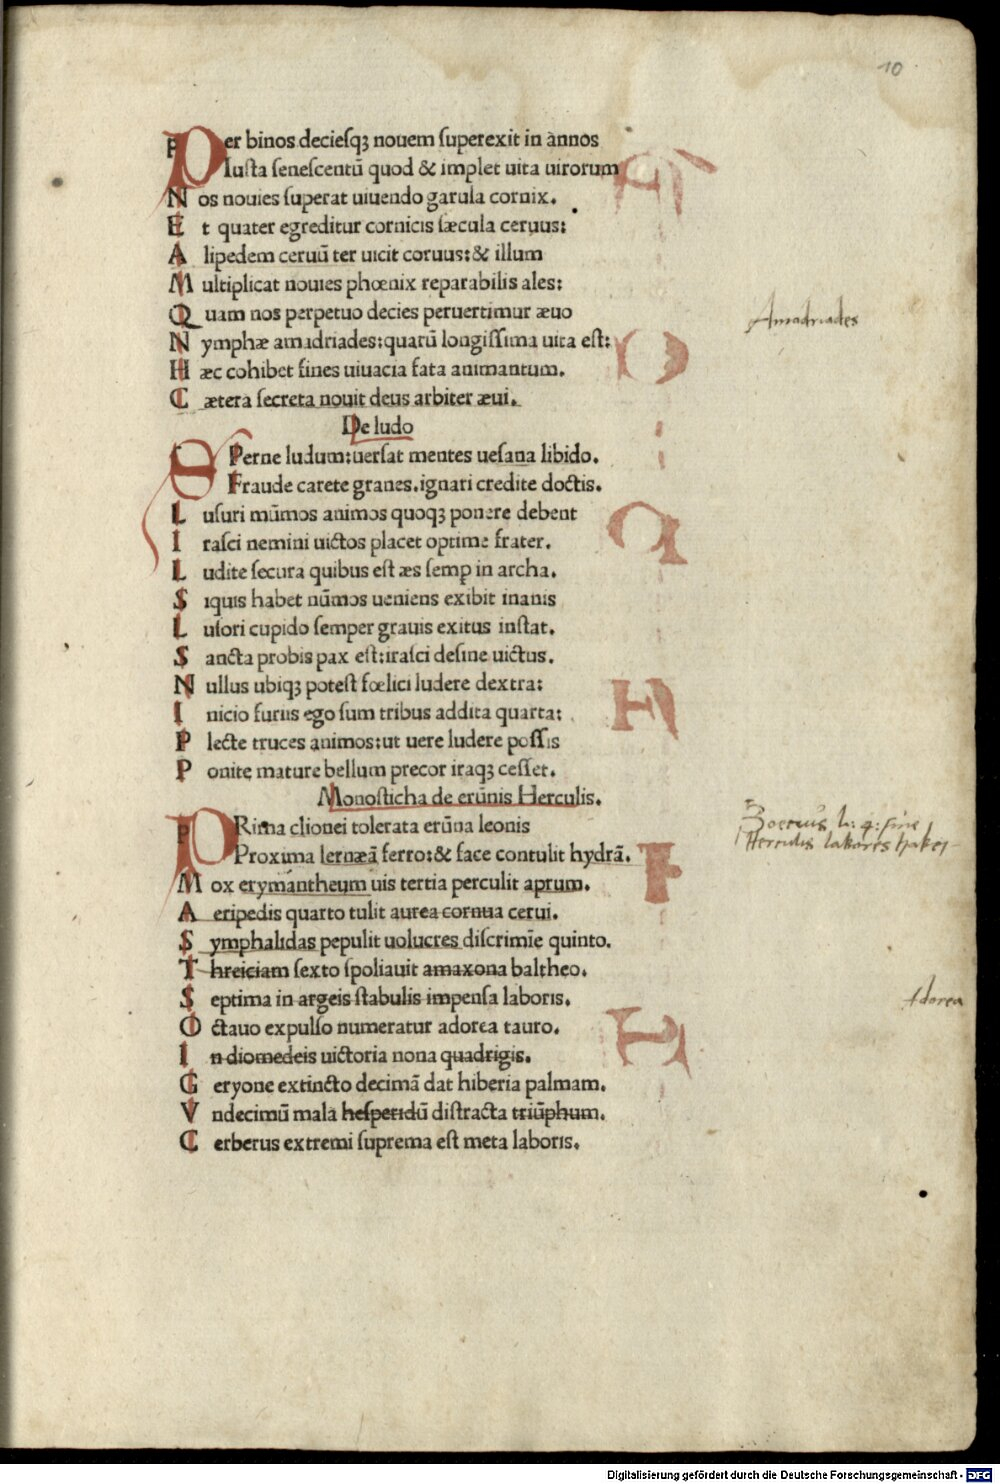 10
Per binos deciesqꝫ nouem superexit in annos
Iusta senescentū quod & implet uita uirorum
Nos nouies superat uiuendo garula cornix.
Et quater egreditur cornicis sæcula ceruus:
Alipedem ceruū ter uicit coruus:& illum
Multiplicat nouies phœnix reparabilis ales:
Quam nos perpetuo decies peruertimur æuo
Nymphæ amadriades:quarū longissima uita est:
Hæc cohibet fines uiuacia fata animantum.
Cætera secreta nouit deus arbiter æui.
Amadriades
De ludo
SPerne ludum:uersat mentes uesana libido.
Fraude carete graues.ignari credite doctis.
Lusuri nūmos animos quoqꝫ ponere debent
Irasci nemini uictos placet optime frater.
Ludite secura quibus est æs semp in archa.
Siquis habet nūmos ueniens exibit inanis
Lusori cupido semper grauis exitus instat.
Sancta probis pax est:irasci desine uictus.
Nullus ubiqꝫ potest fœlici ludere dextra:
Inicio furiis ego sum tribus addita quarta:
Plecte truces animos:ut uere ludere possis
Ponite mature bellum precor iraqꝫ cesset.
Monosticha de erūnis Herculis.
PRima clionei tolerata erūna leonis
Proxima lernæā ferro:& face contulit hydrā.
Mox erymantheum uis tertia perculit aprum.
Aeripedis quarto tulit aurea cornua cerui.
Symphalidas pepulit uolucres discrimīe quinto.
Threiciam sexto spoliauit amaxona baltheo.
Septima in argeis stabulis impensa laboris.
Octauo expulso numeratur adorea tauro.
In diomedeis uictoria nona quadrigis.
Geryone extincto decimā dat hiberia palmam.
Vndecimū mala hesperidū distracta triūphum.
Cerberus extremi suprema est meta laboris.
Boecius li. 4. fine
Herculis labores habet
Adorea
Digitalisierung gefördert durch die Deutsche Forschungsgemeinschaft - DFG